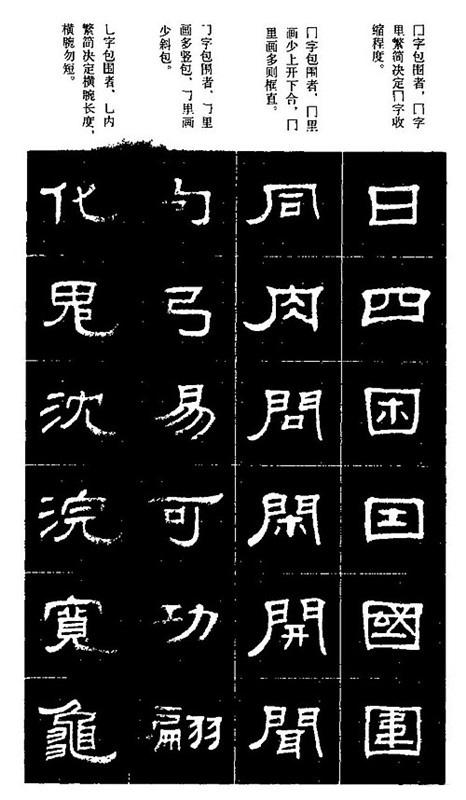 囗字包围者，囗字
里繁简决定囗字收
缩程度。
冂字包围者，冂里
画少上开下合，冂
里画多则框直。
㇆字包围者，㇆里
画多竖包，㇆里画
少斜包。
乚字包围者，乚内
繁简决定横腕长度，
横腕勿短。
日四困囯國
同肉問閑開聞
勺弓易可功翩
化鬼沈浣寬龜